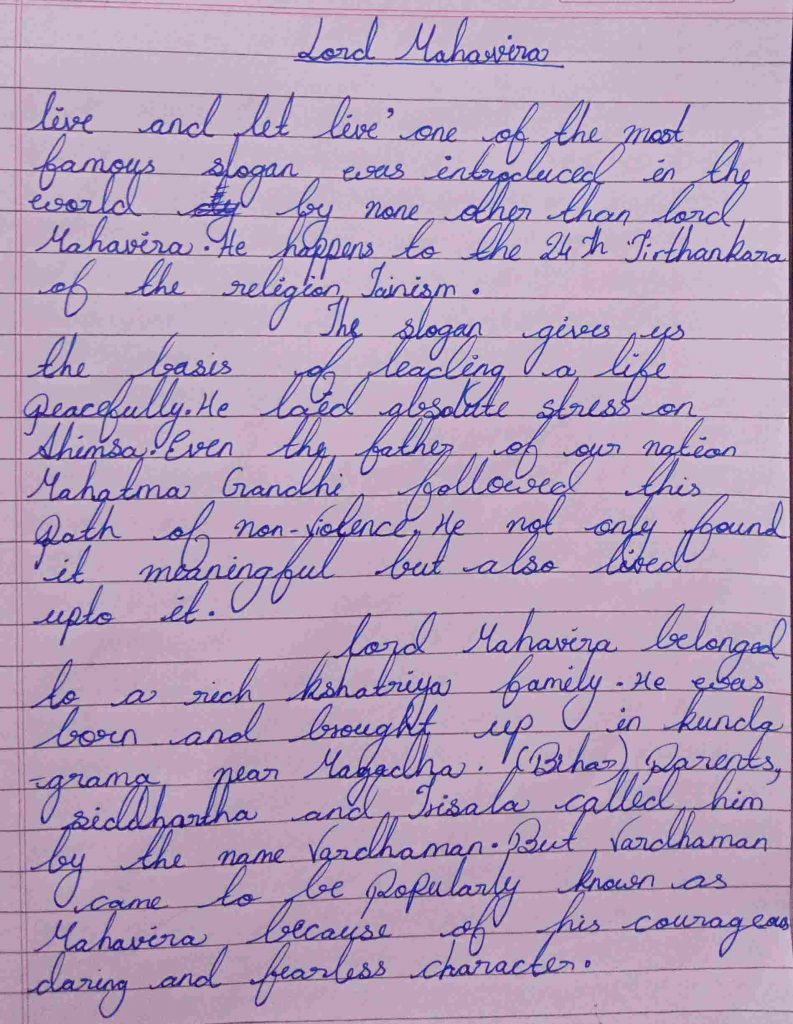 Lord Mahavira
live and let live' one of the most
famous slogan was introduced in the
world by none other than lord
Mahavira. He happens to the 24th Tirthankara
of the religion Jainism.
The slogan gives us
the basis of leading a life
peacefully. He laid absolute stress on
Ahimsa. Even the father of our nation
Mahatma Gandhi followed this
path of non-violence. He not only found
it meaningful but also lived
upto it.
Lord Mahavira belonged
to a rich kshatriya family. He was
born and brought up in kunda
-grama near Magadha. (Bihar) Parents,
siddhartha and Trisala called him
by the name Vardhaman. But Vardhaman
came to be popularly known as
Mahavira because of his courageous
daring and fearless character.